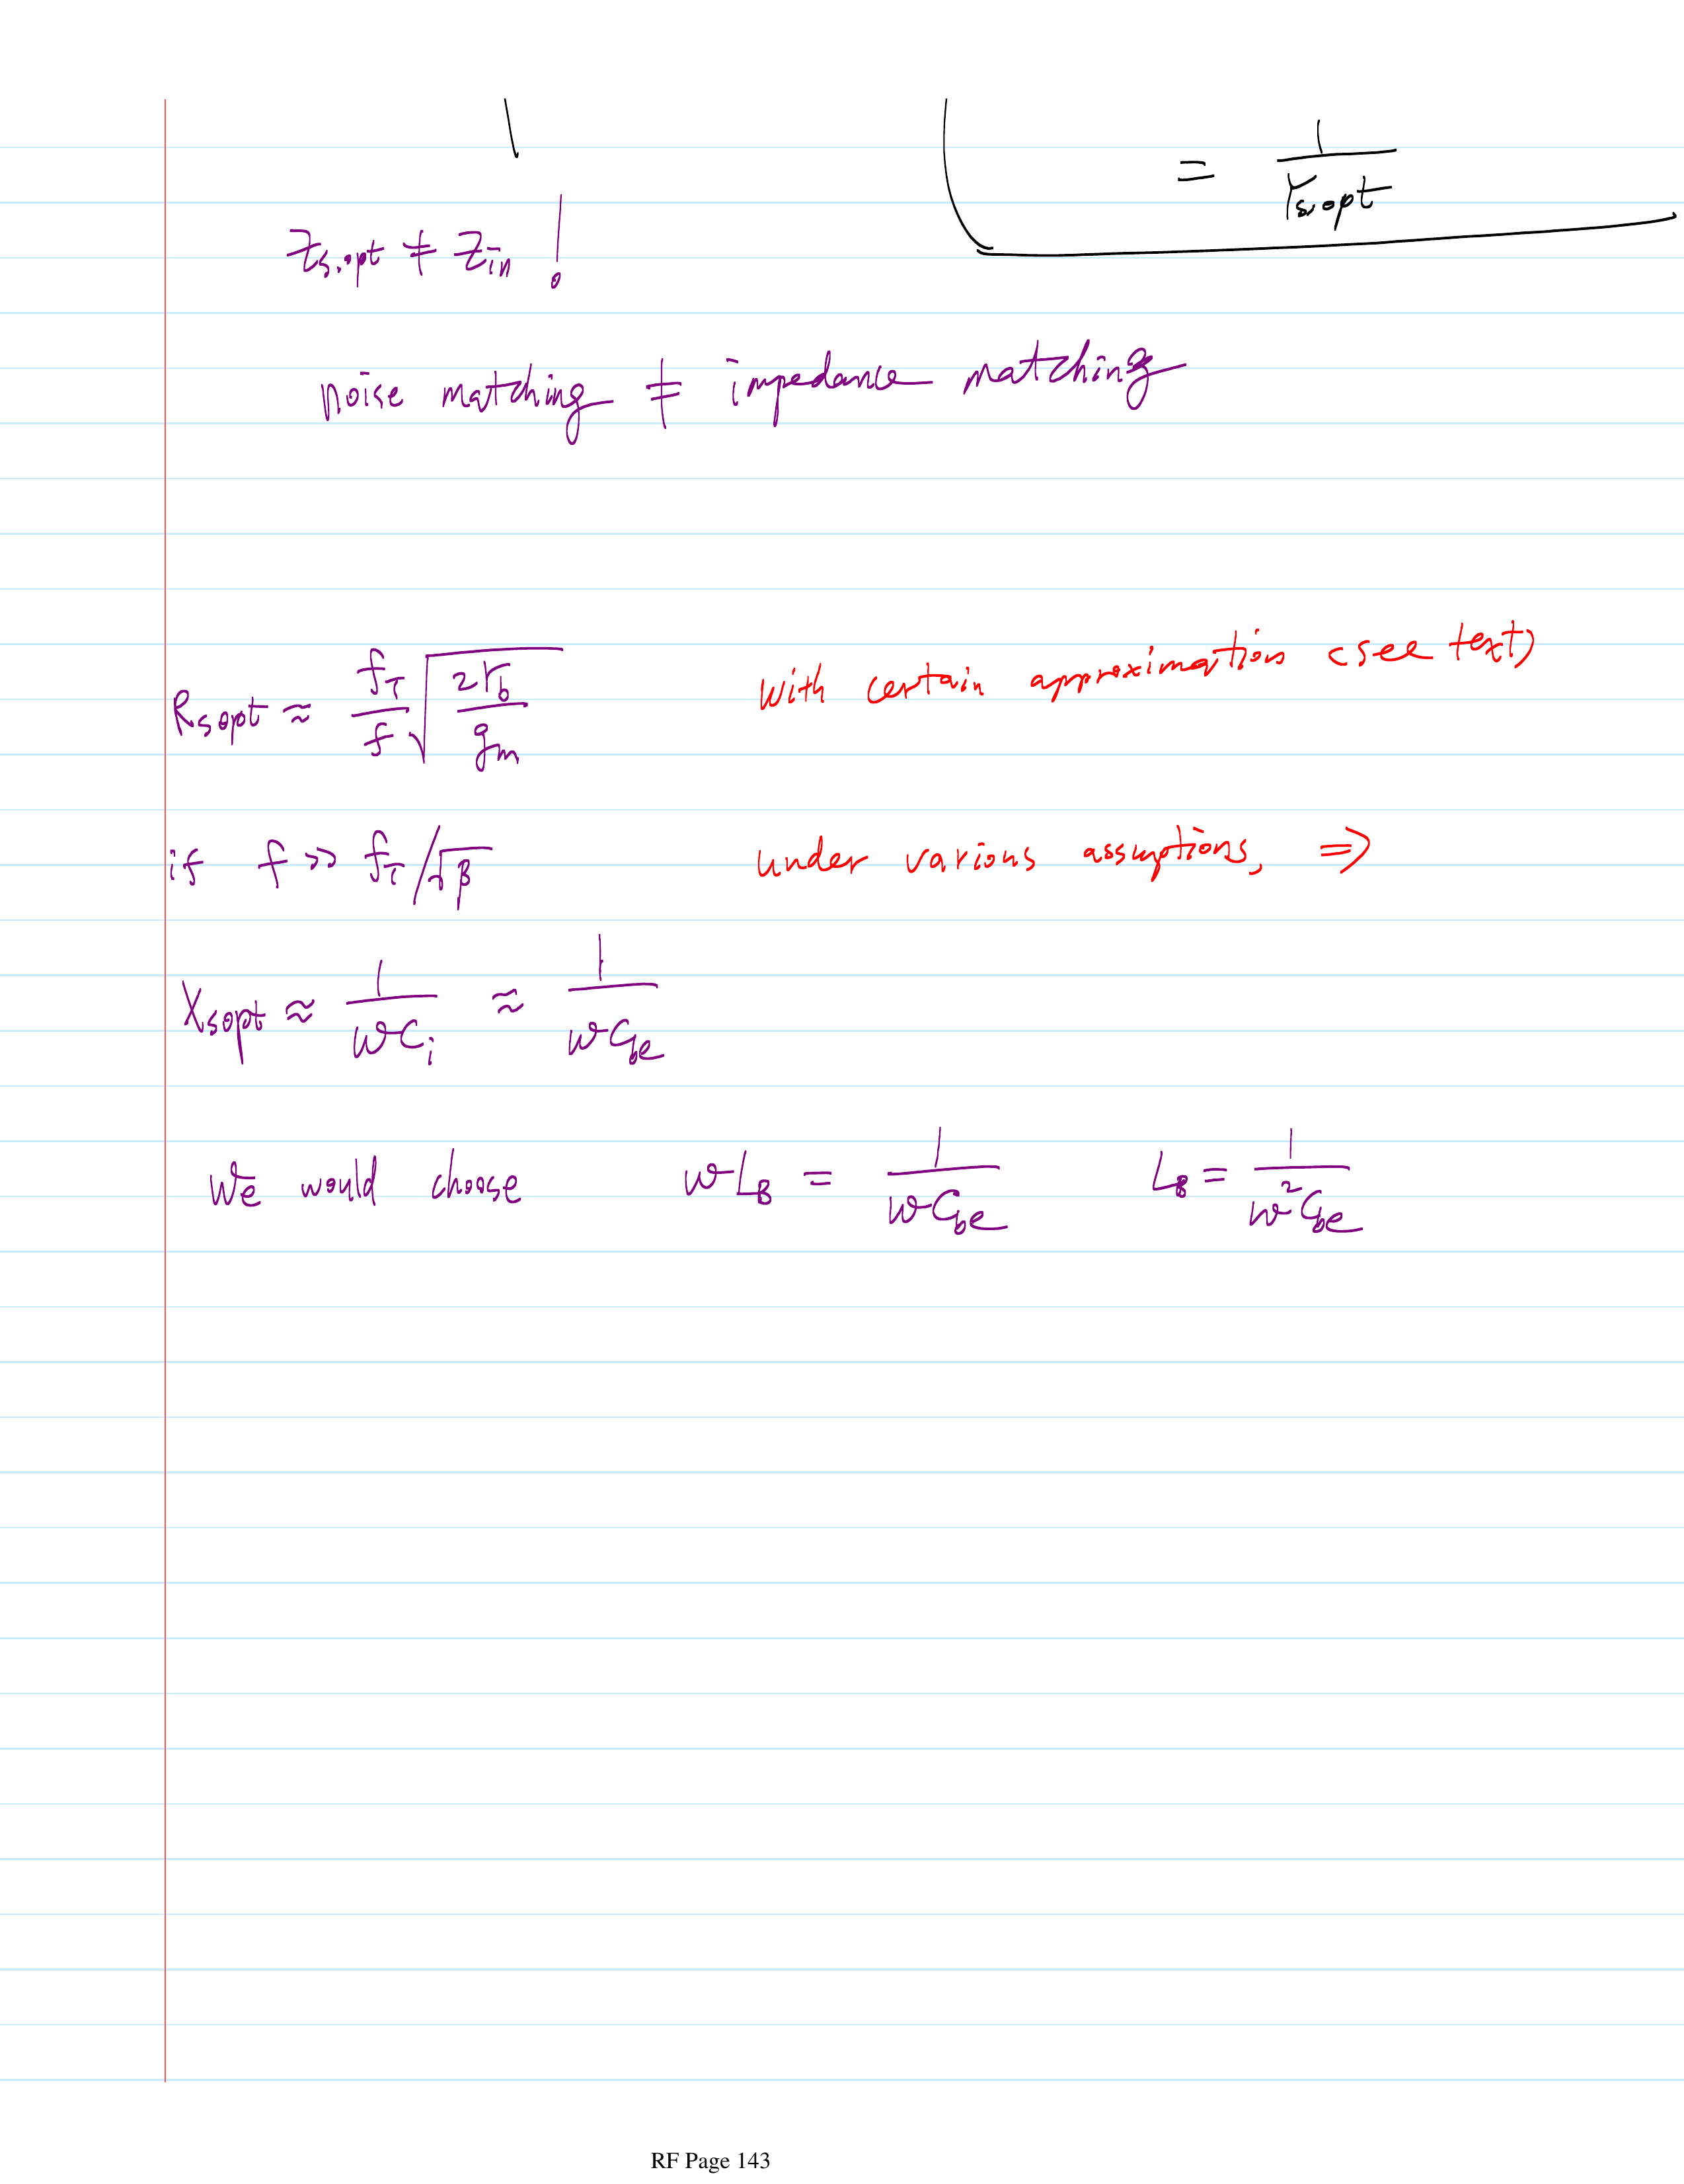 = 1/Ys,opt
Zs,opt ≠ Zin !
noise matching ≠ impedance matching
Rsopt ≈ fT/f √(2rb/gm) with certain approximation (see text)
if f >> fT/√β under various assumptions, ⇒
Xsopt ≈ 1/ωCi ≈ 1/ωCbe
We would choose ωLB = 1/ωCbe LB = 1/ω²Cbe
RF Page 143